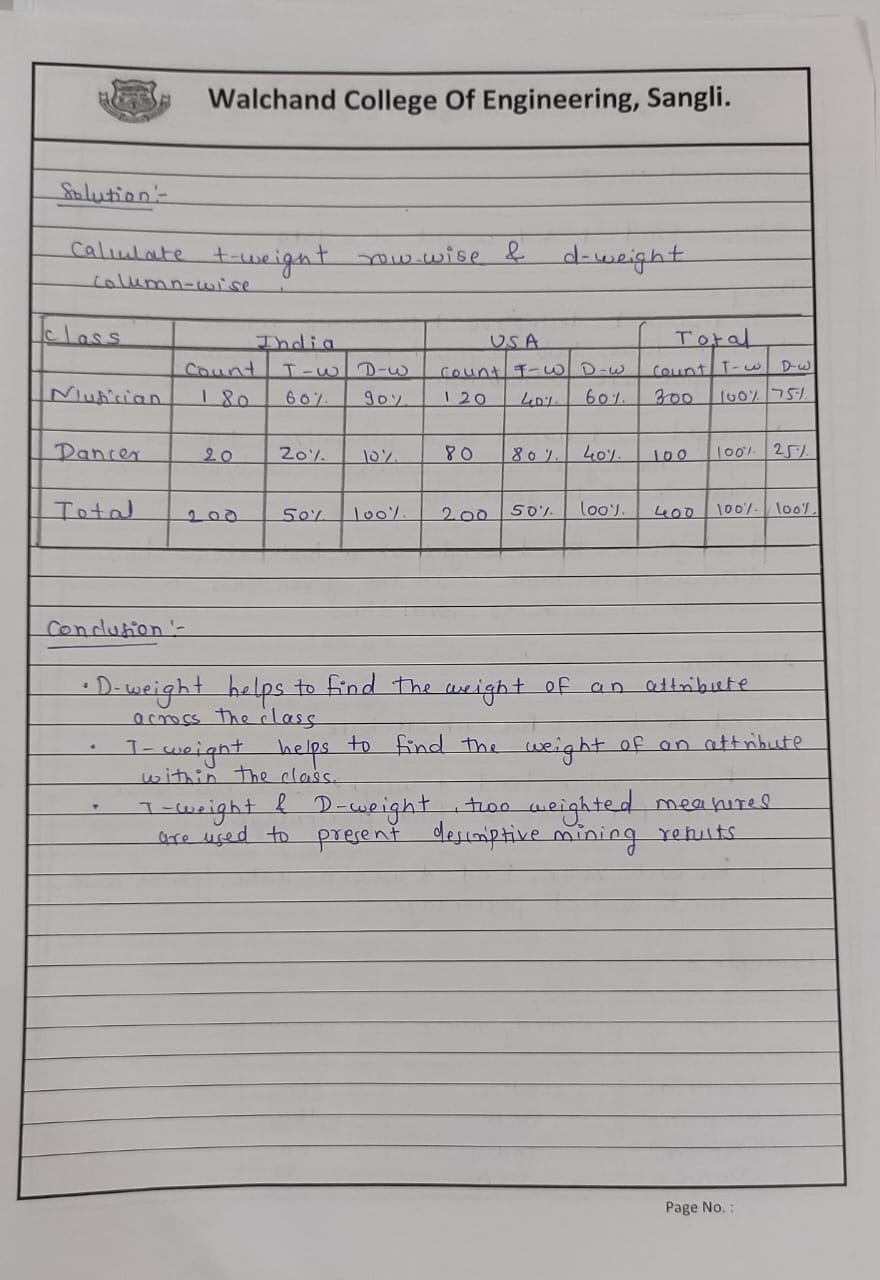 Walchand College Of Engineering, Sangli.
Solution:-
Calculate t-weight row-wise & d-weight
column-wise.
Class India USA Total
Count T-W D-W Count T-W D-W Count T-W D-W
Musician 180 60% 90% 120 40% 60% 300 100% 75%
Dancer 20 20% 10% 80 80% 40% 100 100% 25%
Total 200 50% 100% 200 50% 100% 400 100% 100%
Conclusion:-
• D-weight helps to find the weight of an attribute
across the class
• T-weight helps to find the weight of an attribute
within the class.
• T-weight & D-weight, two weighted measures
are used to present descriptive mining results
Page No. :